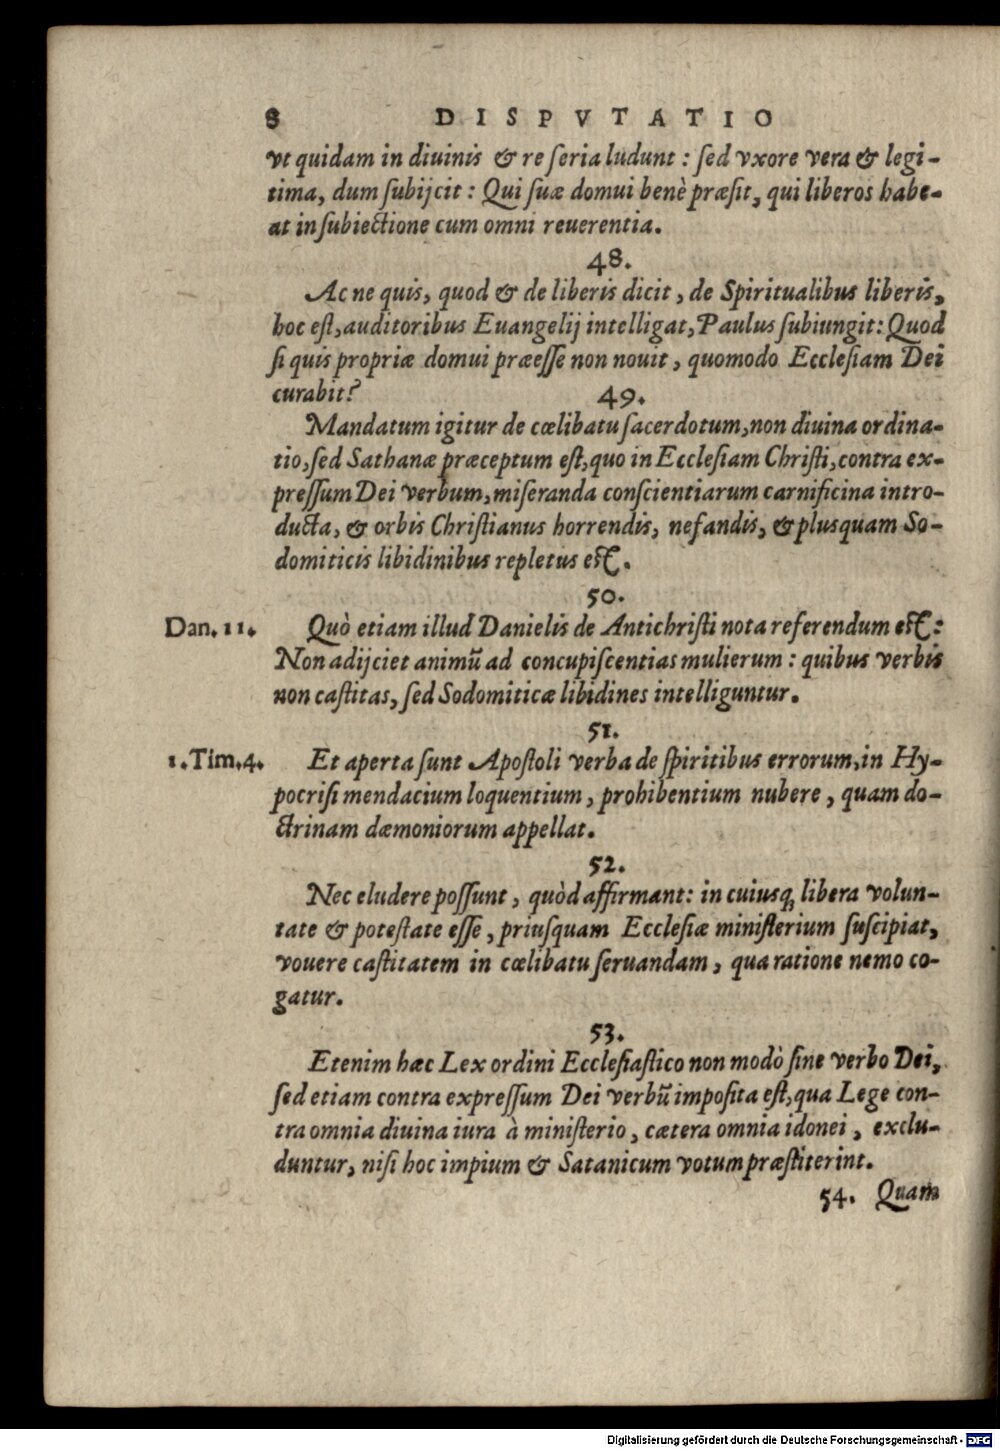 8 DISPVTATIO
vt quidam in diuinis & re seria ludunt : sed vxore vera & legi-
tima, dum subijcit : Qui suæ domui benè præsit, qui liberos habe-
at in subiectione cum omni reuerentia.
48.
Ac ne quis, quod & de liberis dicit, de Spiritualibus liberis,
hoc est, auditoribus Euangelij intelligat, Paulus subiungit: Quod
si quis propriæ domui præesse non nouit, quomodo Ecclesiam Dei
curabit?
49.
Mandatum igitur de cœlibatu sacerdotum, non diuina ordina-
tio, sed Sathanæ præceptum est, quo in Ecclesiam Christi, contra ex-
pressum Dei verbum, miseranda conscientiarum carnificina intro-
ducta, & orbis Christianus horrendis, nefandis, & plusquam So-
domiticis libidinibus repletus est.
50.
Dan. 11. Quò etiam illud Danielis de Antichristi nota referendum est:
Non adijciet animũ ad concupiscentias mulierum : quibus verbis
non castitas, sed Sodomiticæ libidines intelliguntur.
51.
1. Tim. 4. Et aperta sunt Apostoli verba de spiritibus errorum, in Hy-
pocrisi mendacium loquentium, prohibentium nubere, quam do-
ctrinam dæmoniorum appellat.
52.
Nec eludere possunt, quòd affirmant: in cuiusq; libera volun-
tate & potestate esse, priusquam Ecclesiæ ministerium suscipiat,
vouere castitatem in cœlibatu seruandam, qua ratione nemo co-
gatur.
53.
Etenim hæc Lex ordini Ecclesiastico non modò sine verbo Dei,
sed etiam contra expressum Dei verbũ imposita est, qua Lege con-
tra omnia diuina iura à ministerio, cætera omnia idonei, exclu-
duntur, nisi hoc impium & Satanicum votum præstiterint.
54. Quam
Digitalisierung gefördert durch die Deutsche Forschungsgemeinschaft - DFG